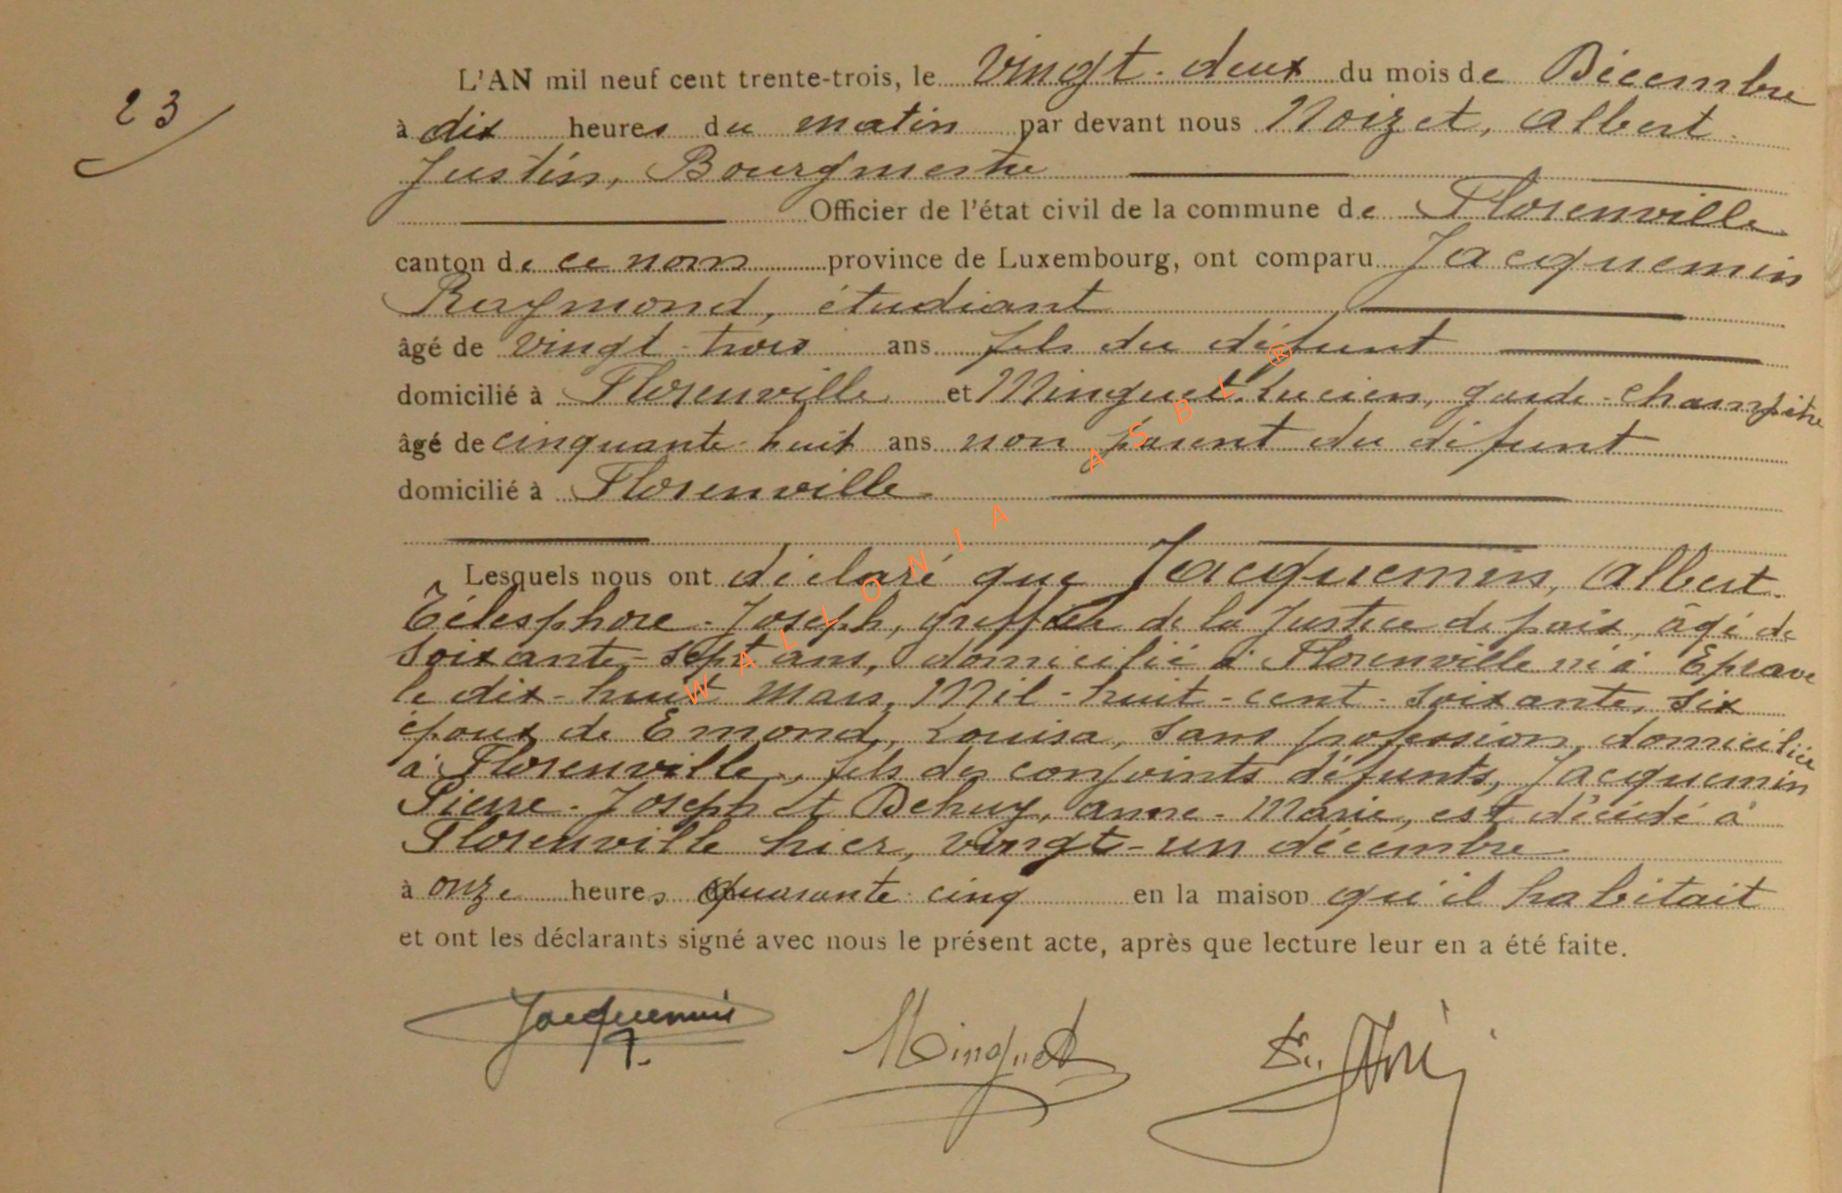 23
L'AN mil neuf cent trente-trois, le vingt-deux du mois de Décembre
à dix heures du matin par devant nous Noizet, Albert
Justin, Bourgmestre
Officier de l'état civil de la commune de Florenville
canton de ce nom province de Luxembourg, ont comparu Jacquemin
Raymond, étudiant
âgé de vingt-trois ans fils du défunt
domicilié à Florenville et Minguet Lucien, garde-champêtre
âgé de cinquante-huit ans non parent du défunt
domicilié à Florenville
Lesquels nous ont déclaré que Jacquemin, Albert
Télesphore-Joseph, greffier de la Justice de paix, âgé de
soixante-sept ans, domicilié à Florenville né à Eprave
le dix-huit Mars, Mil-huit-cent-soixante, six
époux de Emond, Louisa, sans profession, domiciliée
à Florenville, fils des conjoints défunts, Jacquemin
Pierre-Joseph et Dehuy, Anne-Marie, est décédé à
Florenville hier, vingt-un décembre
à onze heures quarante cinq en la maison qu'il habitait
et ont les déclarants signé avec nous le présent acte, après que lecture leur en a été faite.
Jacquemin Minguet
WALLONIA ASBL ®